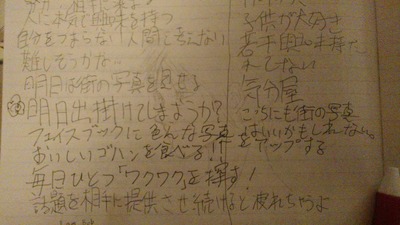 人に本気で興味を持つ
自分をつまらない人間と考えない
難しそうかな
明日は街の写真を見せる
明日出掛けてしまおうか?
フェイスブックに色んな写真をアップする
おいしいゴハンを食べる!!
毎日ひとつ「ワクワク」を探す!
話題を相手に提供させ続けると疲れちゃうよ
子供が大好き
若干
気分屋
こっちにも街の写真
はいいかもしれない。